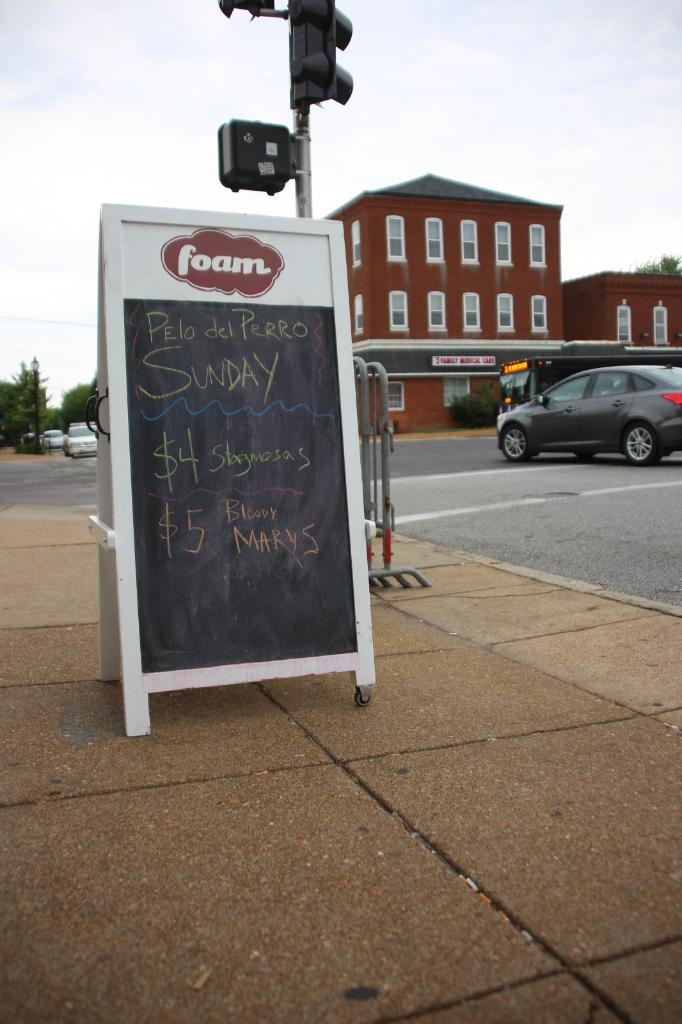 foam
PELO del PERRO
SUNDAY
$4 Stagmosas
$5 BLOODY
MARYS
FAMILY MEDICAL CARE